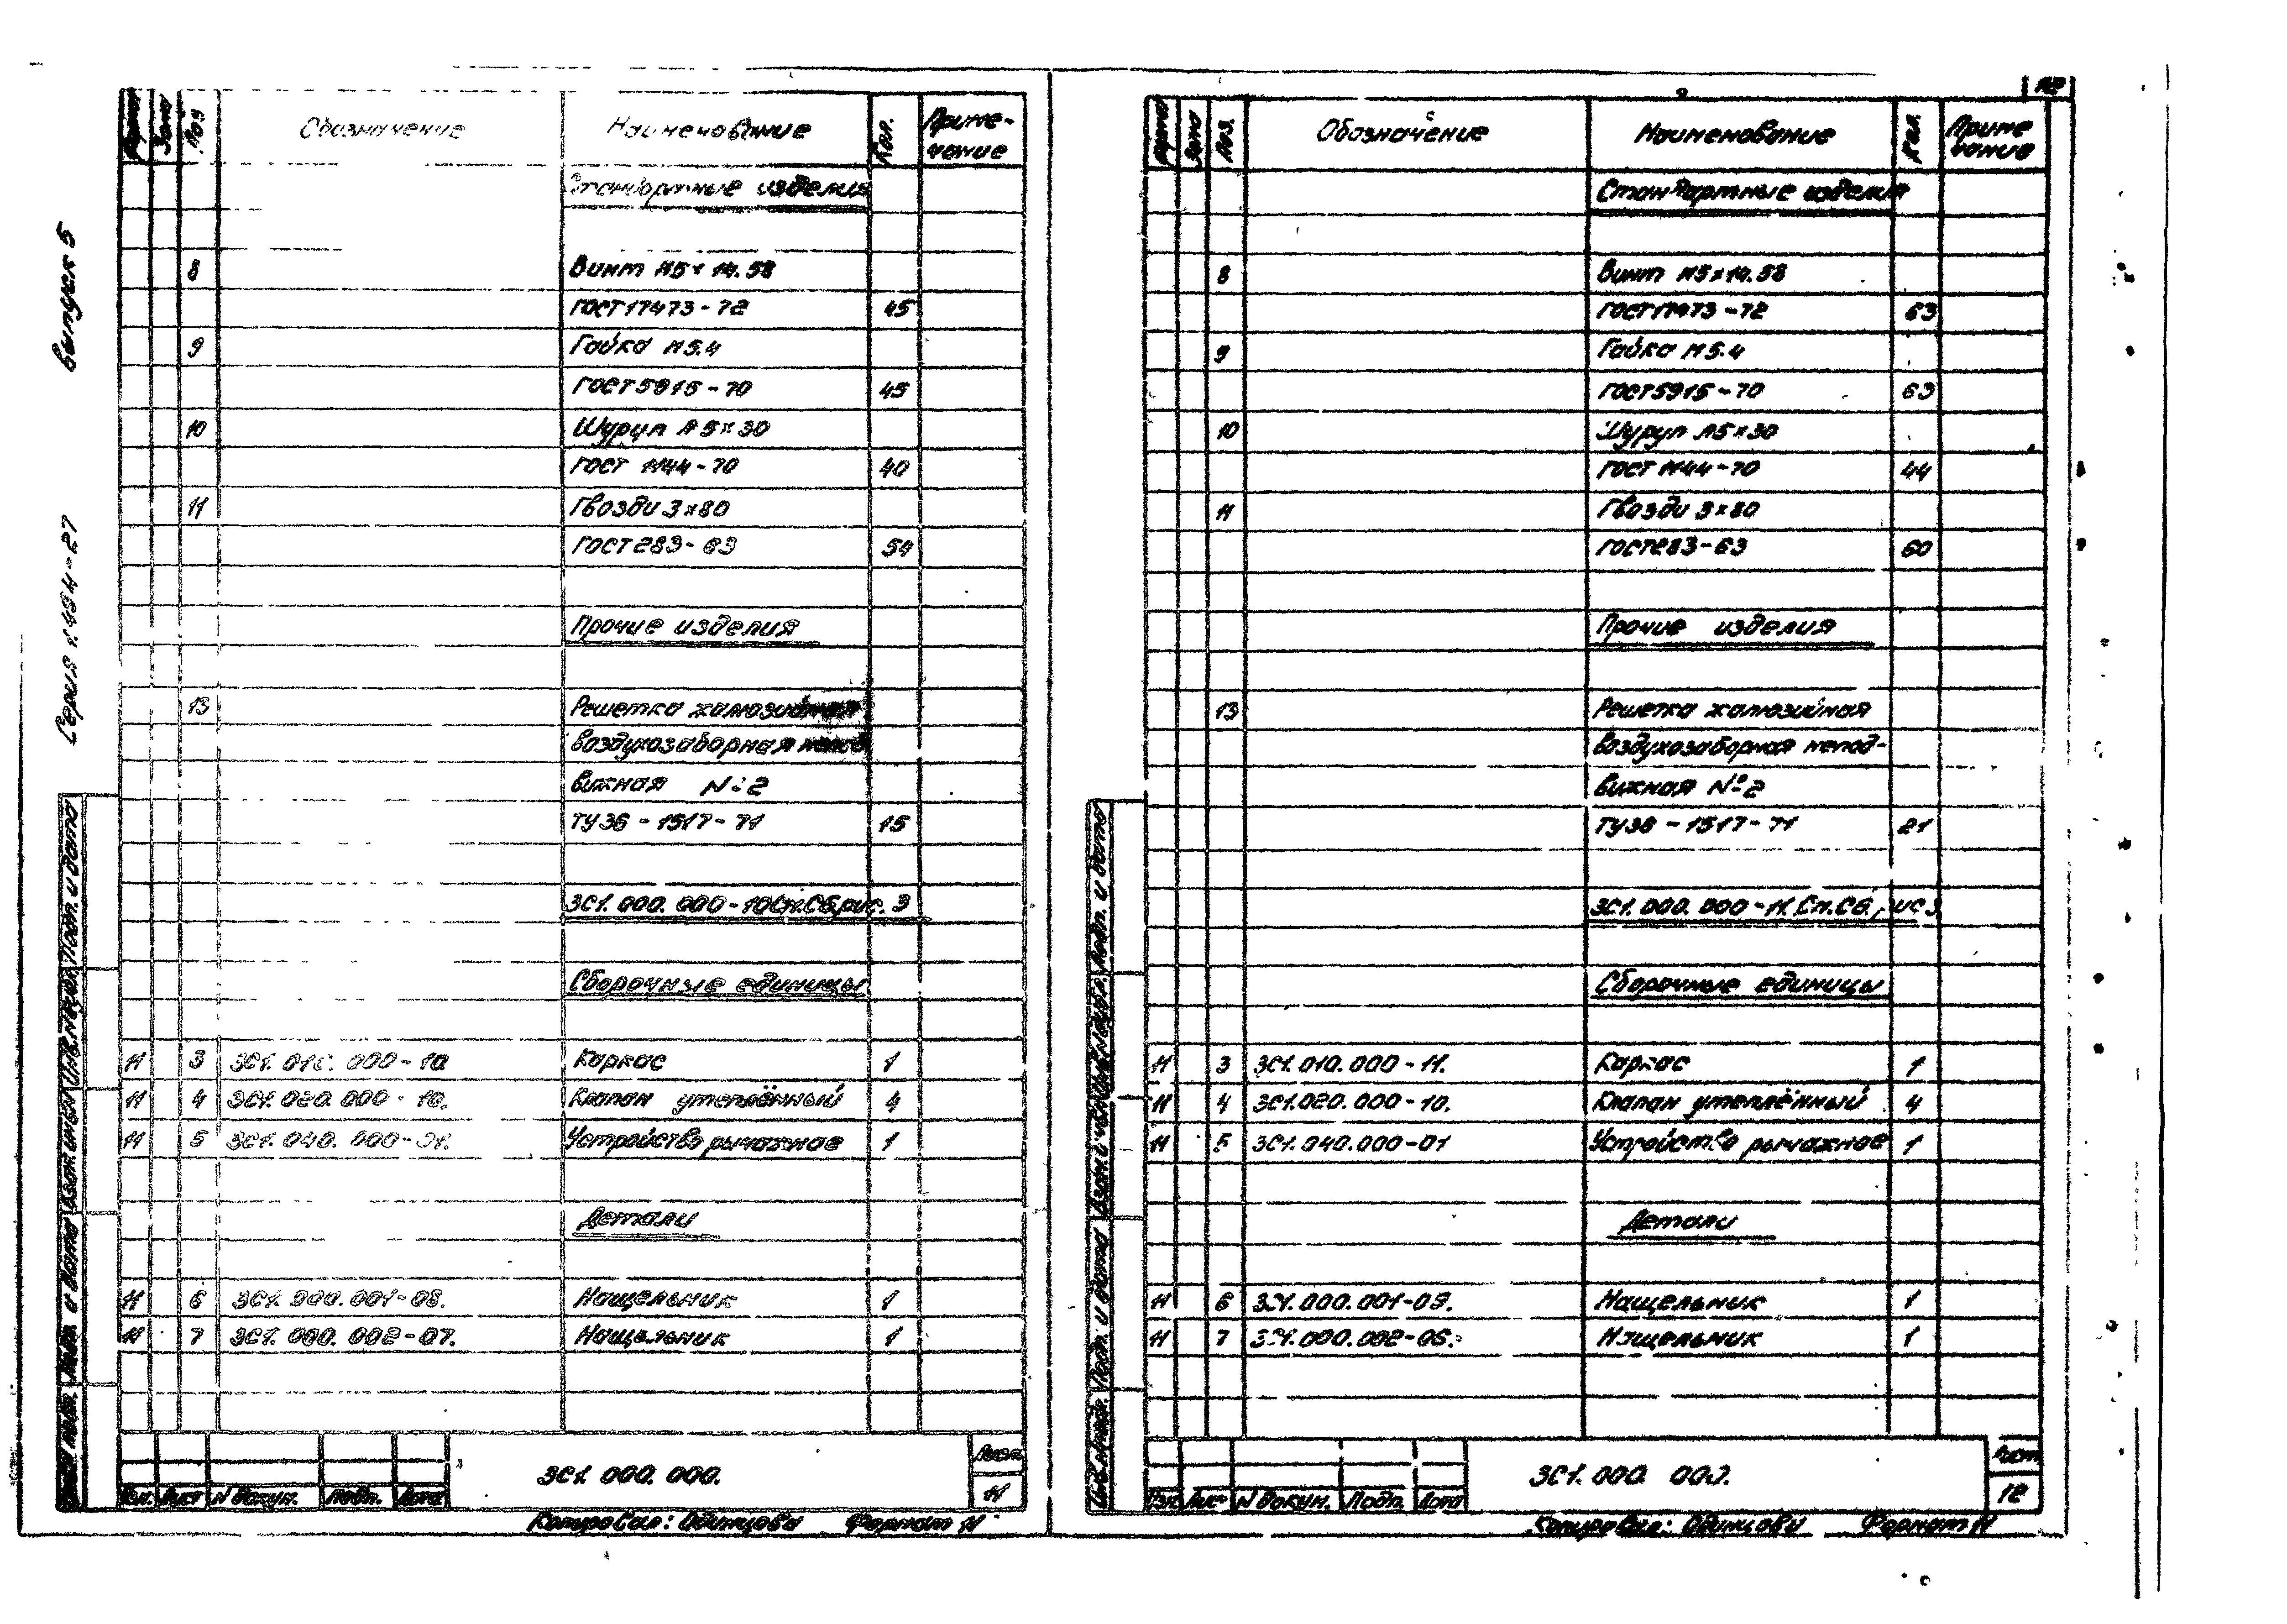 Выпуск 5
Серия 1.494-27
Формат Зона Поз Обозначение Наименование Кол. Приме-
чание
Стандартные изделия
8 Винт М5х14.58
ГОСТ 17473-72 45
9 Гайка М5.4
ГОСТ 5915-70 45
10 Шуруп А5х30
ГОСТ 1144-70 40
11 Гвозди 3х80
ГОСТ 283-63 54
Прочие изделия
13 Решетка жалюзийная
воздухозаборная непод
вижная №2
ТУ36-1517-71 15
ЗС1.000.000-10 См.СБ,рис. 3
Сборочные единицы
11 3 ЗС1.010.000-10 Каркас 1
11 4 ЗС1.020.000-10. Клапан утеплённый 4
11 5 ЗС1.040.000-01. Устройство рычажное 1
Детали
11 6 ЗС1.000.001-08. Нащельник 1
11 7 ЗС1.000.002-07. Нащельник 1
Изм. Лист N докум. Подп. Дата
ЗС1.000.000.
Лист
11
Копировал: Одинцова Формат 11
Подп. и дата
Взам. инв.
Подп. и дата
12
Формат Зона Поз. Обозначение Наименование Кол. Приме
чание
Стандартные изделия
8 Винт М5х14.58
ГОСТ 17473-72 63
9 Гайка М5.4
ГОСТ 5915-70 63
10 Шуруп А5х30
ГОСТ 1144-70 44
11 Гвозди 3х80
ГОСТ 283-63 60
Прочие изделия
13 Решетка жалюзийная
воздухозаборная непод-
вижная №2
ТУ36-1517-71 21
ЗС1.000.000-11. См.СБ,рис 3
Сборочные единицы
11 3 ЗС1.010.000-11. Каркас 1
11 4 ЗС1.020.000-10. Клапан утеплённый 4
11 5 ЗС1.040.000-01 Устройство рычажное 1
Детали
11 6 ЗС1.000.001-09. Нащельник 1
11 7 ЗС1.000.002-06. Нащельник 1
Изм Лист N докум. Подп. Дата
ЗС1.000.000.
Лист
12
Копировал: Одинцова Формат 11
Инв.N подл. Подп. и дата
Подп. и дата